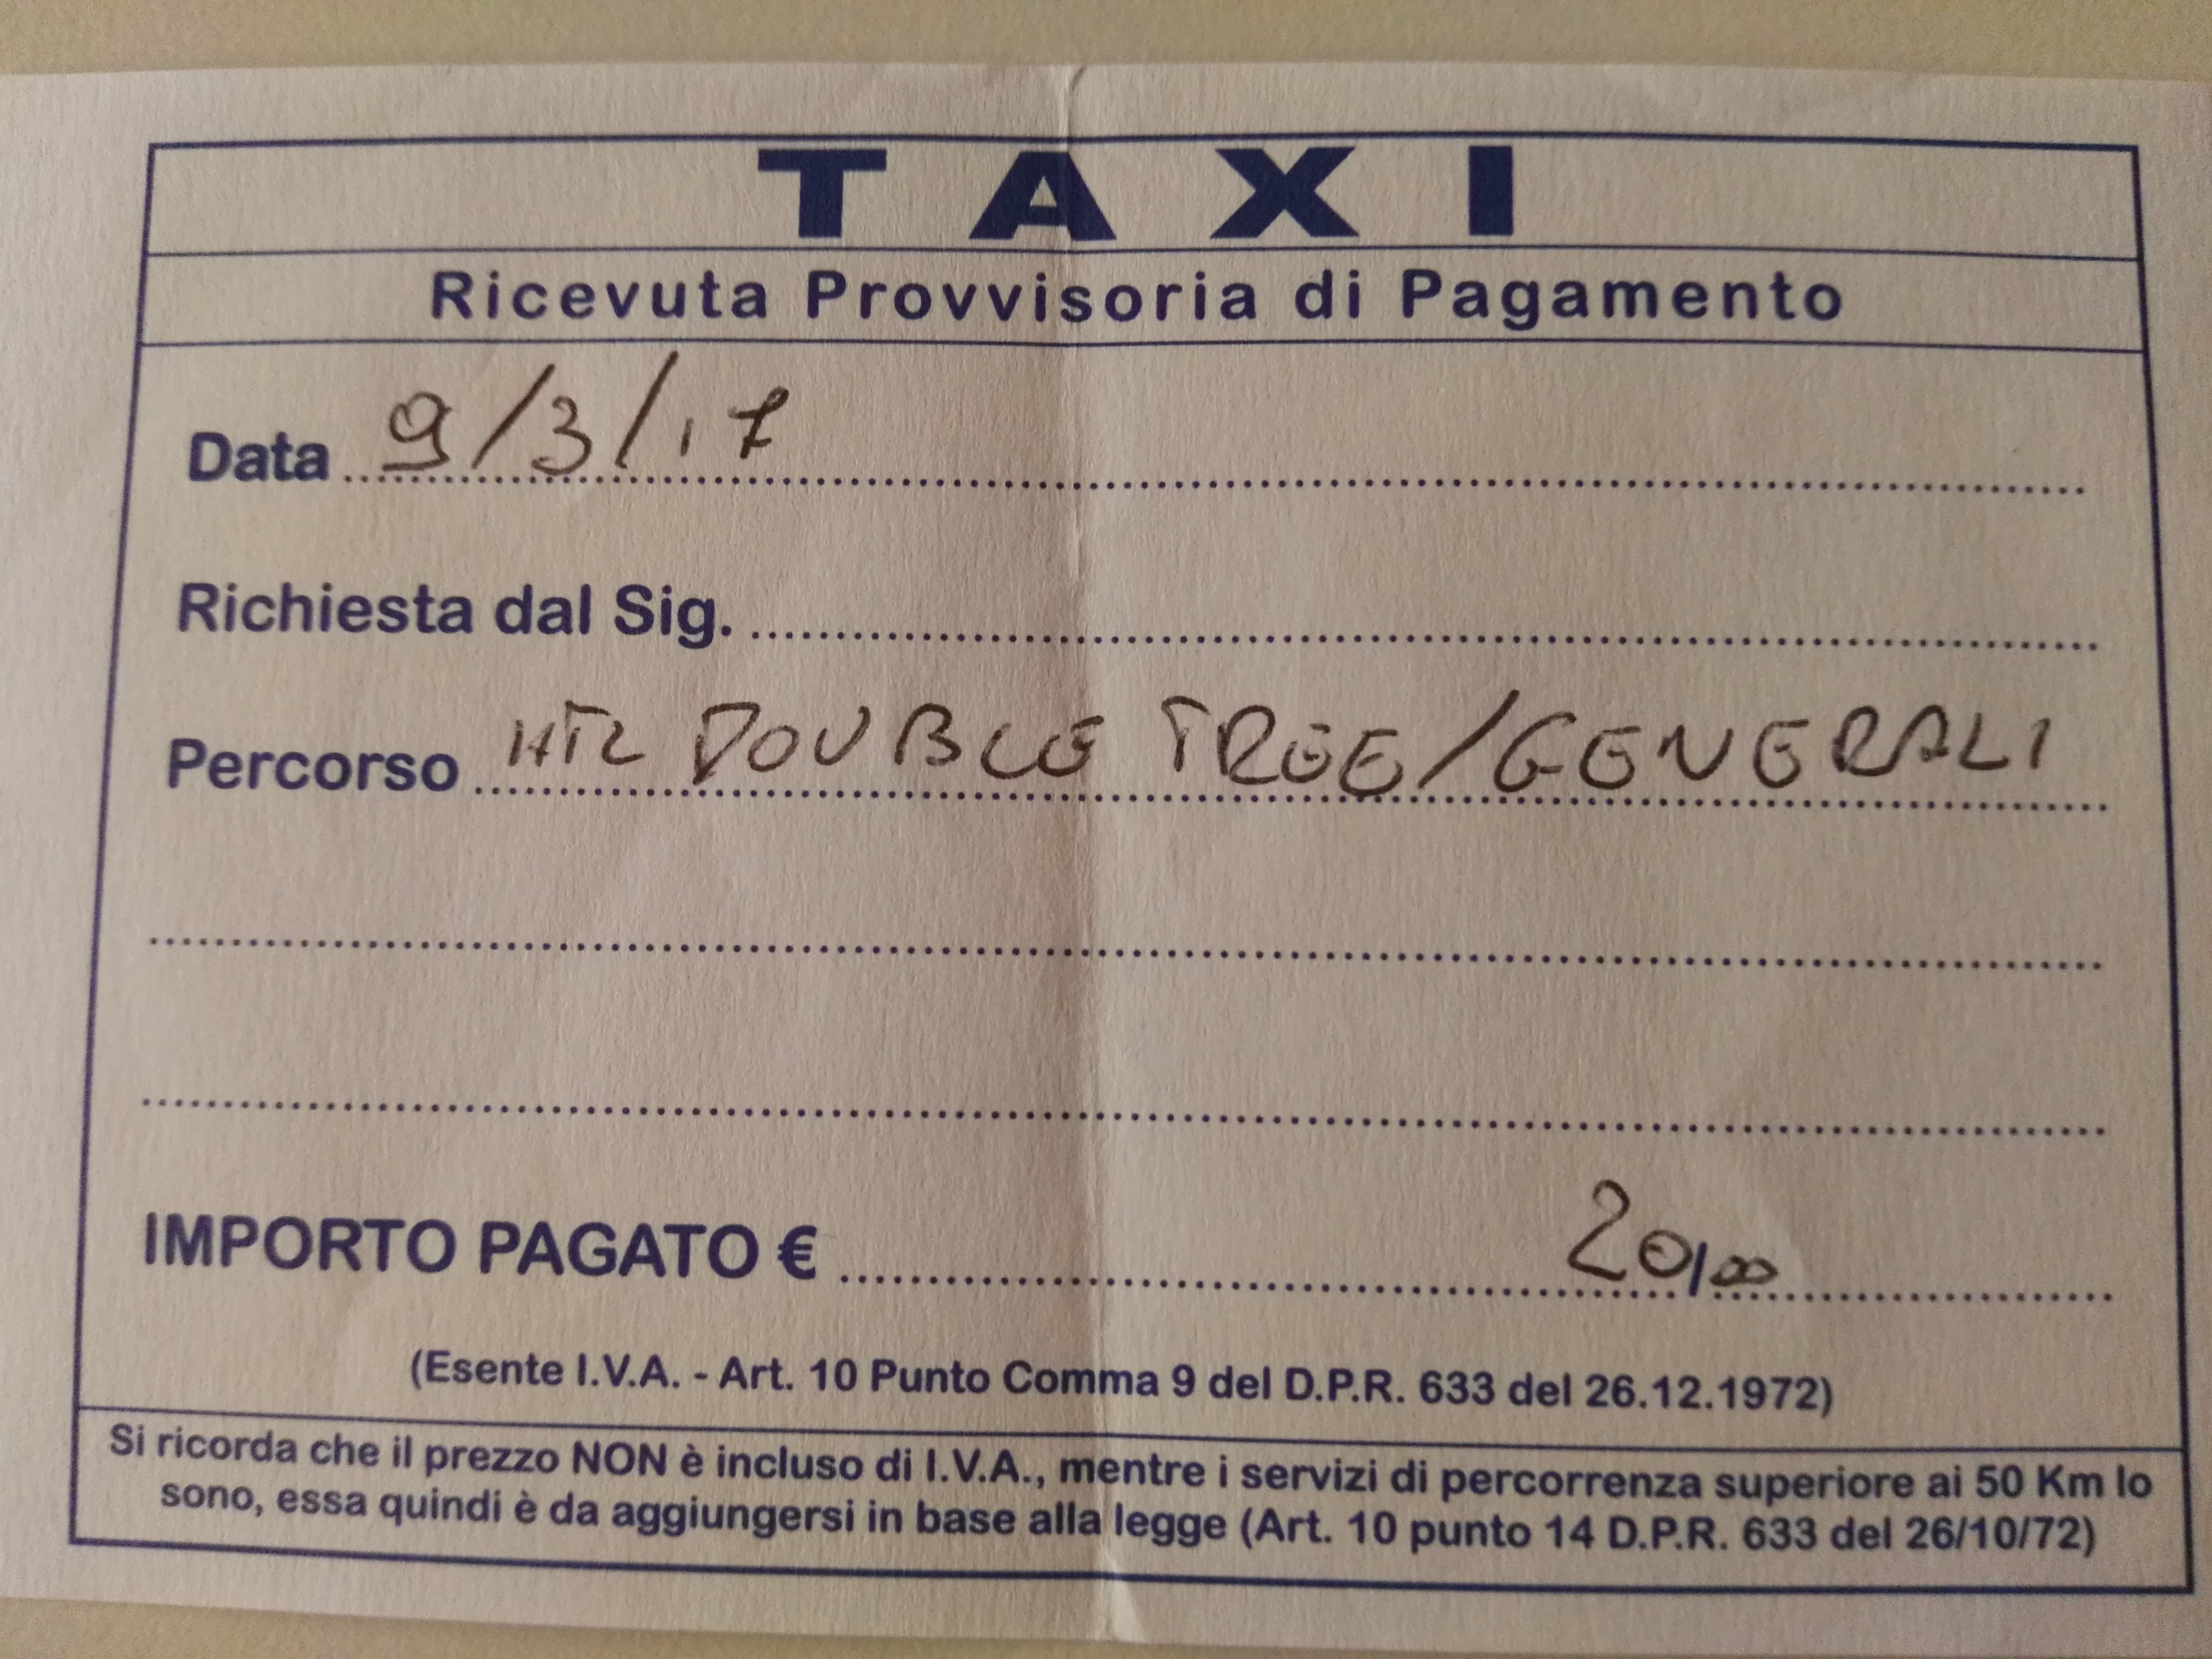 TAXI
Ricevuta Provvisoria di Pagamento
Data 9/3/17
Richiesta dal Sig.
Percorso HTL DOUBLE TREE/GENERALI
IMPORTO PAGATO € 20,00
(Esente I.V.A. - Art. 10 Punto Comma 9 del D.P.R. 633 del 26.12.1972)
Si ricorda che il prezzo NON è incluso di I.V.A., mentre i servizi di percorrenza superiore ai 50 Km lo
sono, essa quindi è da aggiungersi in base alla legge (Art. 10 punto 14 D.P.R. 633 del 26/10/72)